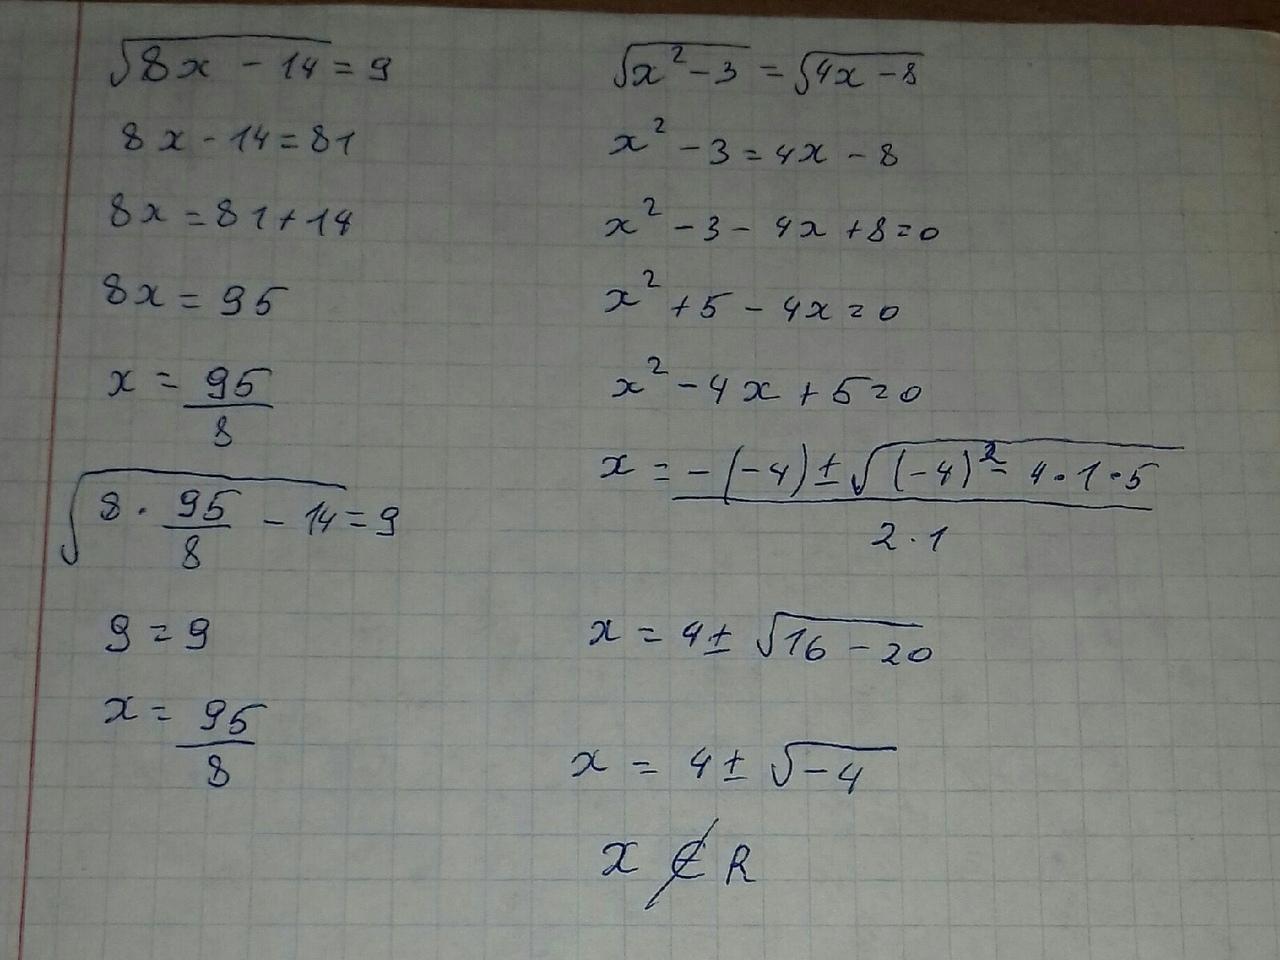 √(8x - 14) = 9
8x - 14 = 81
8x = 81 + 14
8x = 95
x = 95/8
√(8 · 95/8 - 14) = 9
9 = 9
x = 95/8
√(x² - 3) = √(4x - 8)
x² - 3 = 4x - 8
x² - 3 - 4x + 8 = 0
x² + 5 - 4x = 0
x² - 4x + 5 = 0
x = (-(-4) ± √((-4)² - 4 · 1 · 5))/(2 · 1)
x = 4 ± √(16 - 20)
x = 4 ± √(-4)
x ∉ R